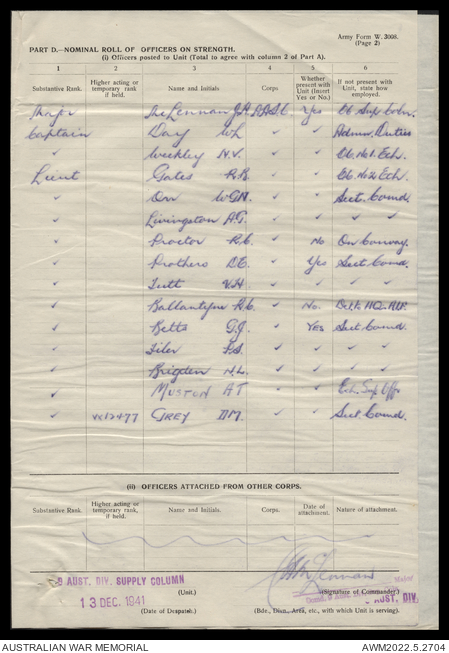 Army Form W. 3008.
(Page 2)
PART D.—NOMINAL ROLL OF OFFICERS ON STRENGTH.
(i) Officers posted to Unit (Total to agree with column 2 of Part A).
1 2 3 4 5 6
Substantive Rank. Higher acting or temporary rank if held. Name and Initials. Corps Whether present with Unit (Insert Yes or No.) If not present with Unit, state how employed.
Major McLennan J.A. A.A.S.C Yes Sup Colmn.
Captain Day W.L. ✓ ✓ Admin. Duties
✓ Weekley N.V. ✓ ✓ No1. Ech.
Lieut Gates R.R. ✓ ✓ No2 Ech.
✓ Orr W.G.N. ✓ ✓ Sect. Comd.
✓ Livingston A.G. ✓ ✓ ✓ ✓
✓ Proctor R.C. ✓ No On Convoy.
✓ Prothero D.E. ✓ Yes Sect. Comd.
✓ Tutt V.H. ✓ ✓ ✓ ✓
✓ Ballantyne R.C. ✓ No. HQ.
✓ Betts G.J. ✓ Yes Sect. Comd.
✓ Tiler P.S. ✓ ✓ ✓ ✓
✓ Brigden N.L. ✓ ✓ ✓ ✓
✓ MUSTON A T ✓ ✓ Ech. Sup Offr
✓ GREY D M. ✓ ✓ Sect. Comd.
(ii) OFFICERS ATTACHED FROM OTHER CORPS.
Substantive Rank. Higher acting or temporary rank, if held. Name and Initials. Corps. Date of attachment. Nature of attachment.
AUST. DIV. SUPPLY COLUMN
(Unit.)
Major
(Signature of Commander.)
AUST. DIV.
13 DEC. 1941
(Date of Despatch.)
(Bde., Divn., Area, etc., with which Unit is serving).
AUSTRALIAN WAR MEMORIAL AWM2022.5.2704